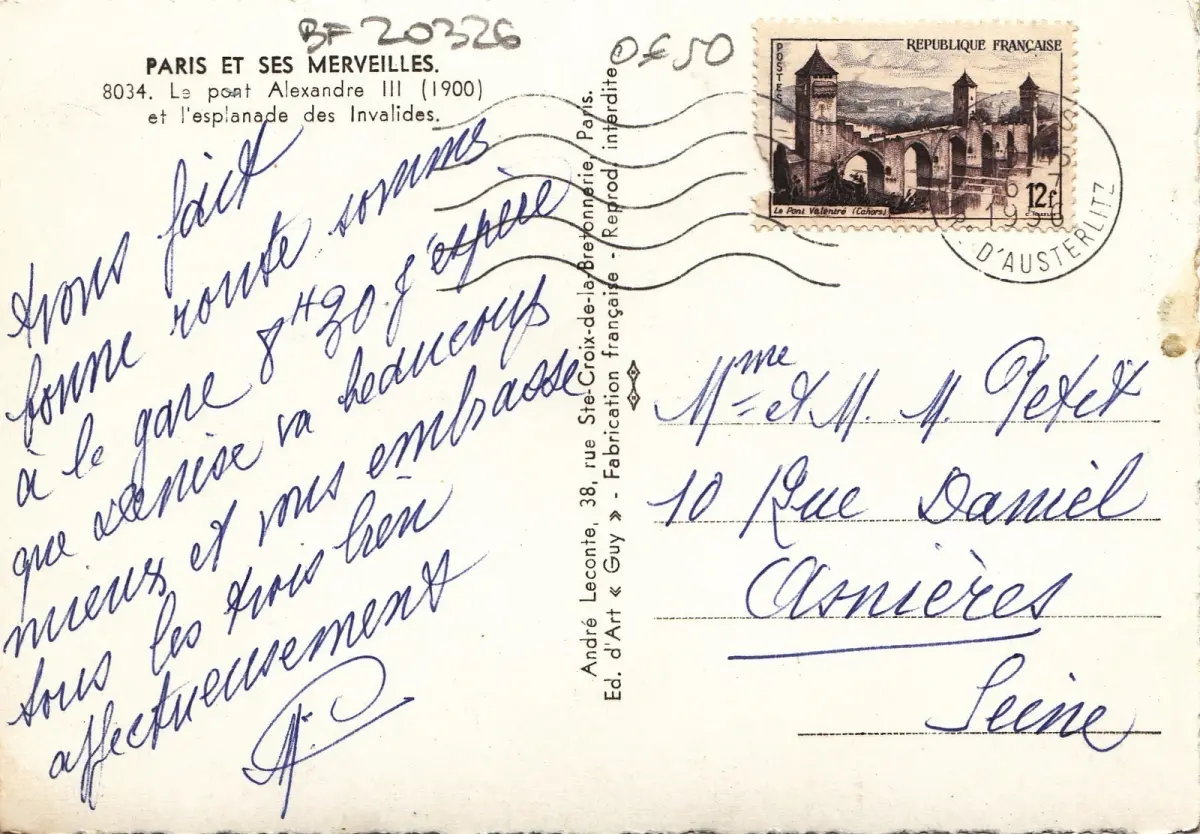 BF 20326
0€50
PARIS ET SES MERVEILLES.
8034. Le pont Alexandre III (1900)
et l'esplanade des Invalides.
Avons fait
bonne route sommes
à la gare 8H30 j'espère
que Denise va beaucoup
mieux et vous embrasse
tous les trois bien
affectueusement
André Leconte, 38, rue Ste-Croix-de-la-Bretonnerie, Paris.
Ed. d'Art « Guy » - Fabrication française - Reprod. interdite
POSTES
REPUBLIQUE FRANÇAISE
12f
Le Pont Valentré (Cahors)
1956
D'AUSTERLITZ
Mme et M. M. Petit
10 Rue Danièl
Asnières
Seine